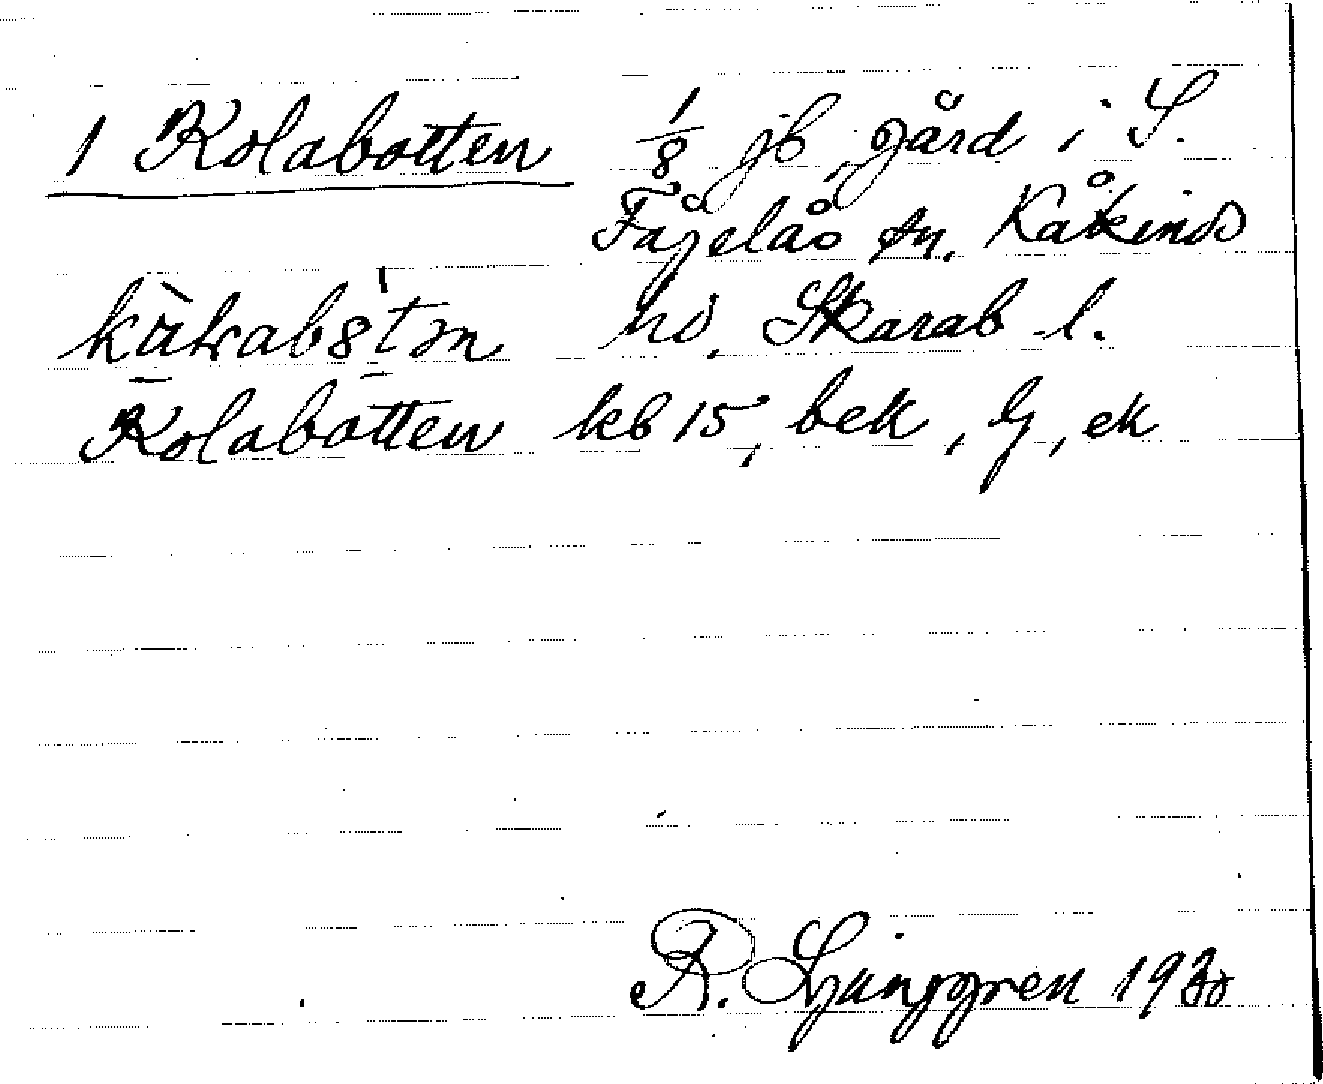 1 Kolabotten 1/8 jb, gård i S.
Fågelås sn. Kåkinds
hd. Skarab l.
Kolabotten kb 15, bek, lj, ek
R. Ljunggren 19